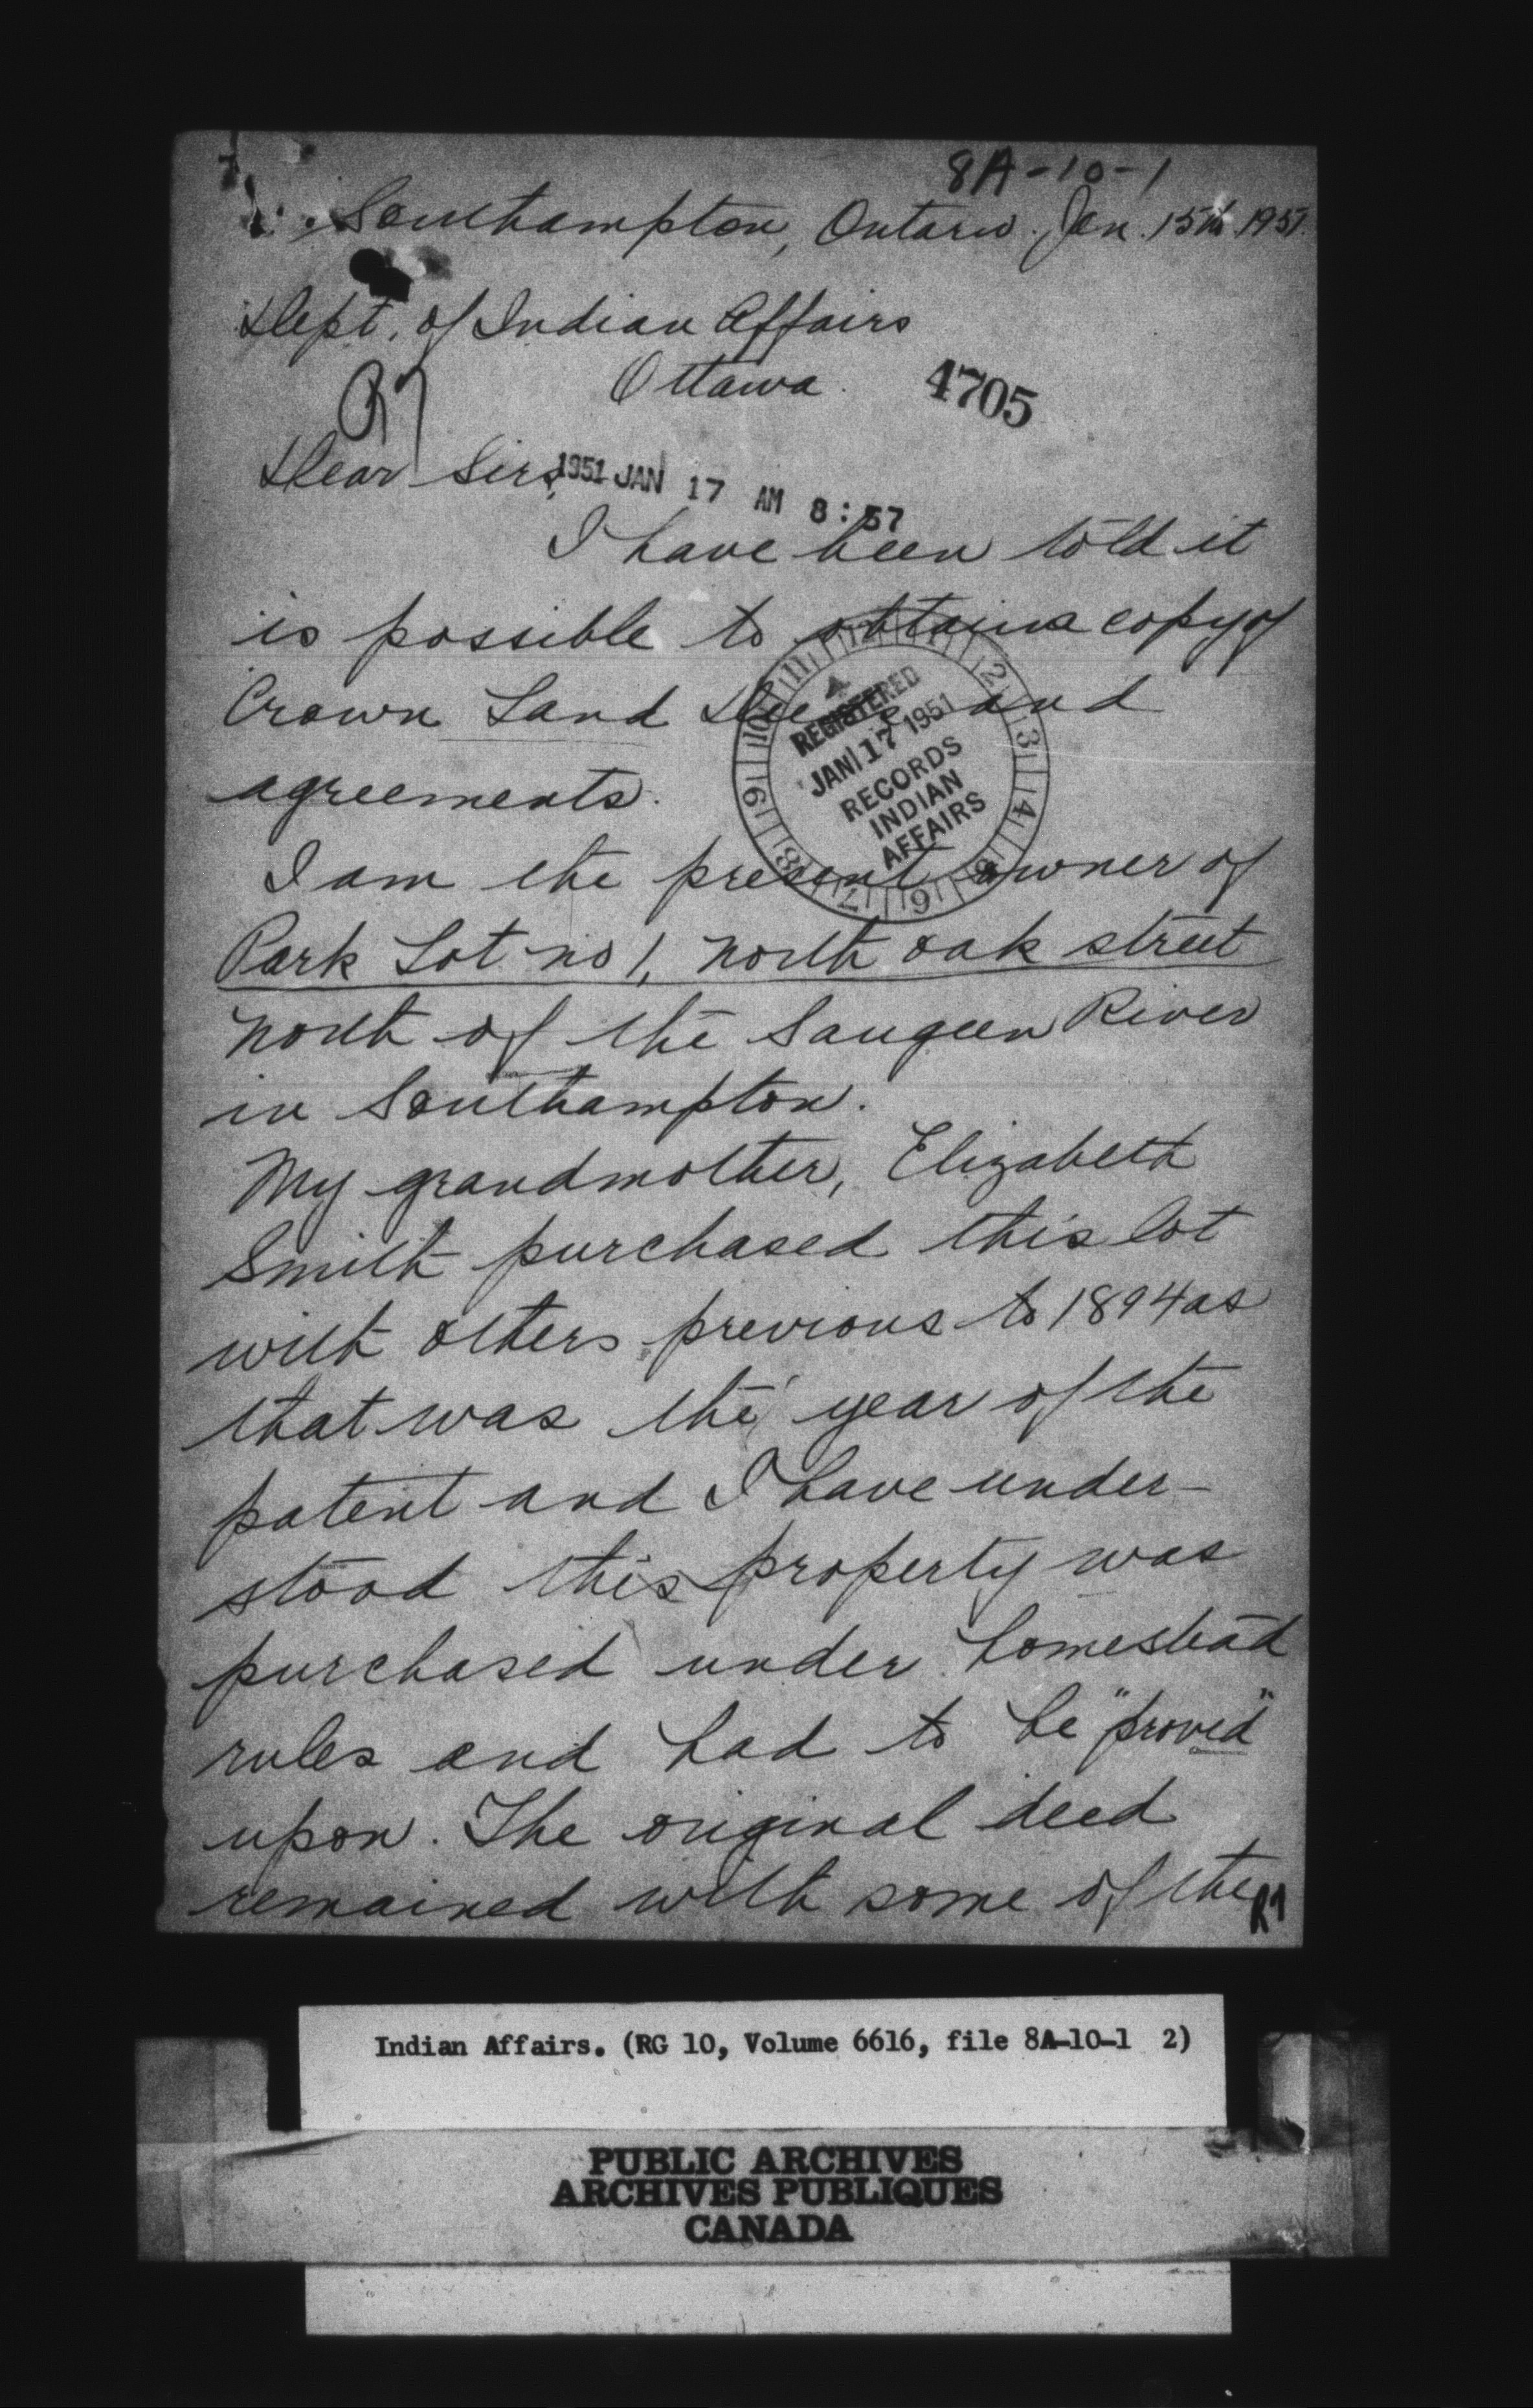 8A-10-1
Southampton, Ontario. Jan. 15th 1951.
Dept. of Indian Affairs
Ottawa.
4705
Dear Sirs,
1951 JAN 17 AM 8:57
I have been told it
is possible to obtain a copy of
Crown Land Deeds and
agreements.
12 1 2 3 4 5 6 7 8 9 10 11
REGISTERED
JAN 17 1951
RECORDS
INDIAN
AFFAIRS
I am the present owner of
Park Lot no 1, north oak street
north of the Saugeen River
in Southampton.
My grandmother, Elizabeth
Smith purchased this lot
with others previous to 1894 as
that was the year of the
patent and I have under-
stood this property was
purchased under homestead
rules and had to be "proved"
upon. The original deed
remained with some of the
R7
Indian Affairs. (RG 10, Volume 6616, file 8A-10-1 2)
PUBLIC ARCHIVES
ARCHIVES PUBLIQUES
CANADA